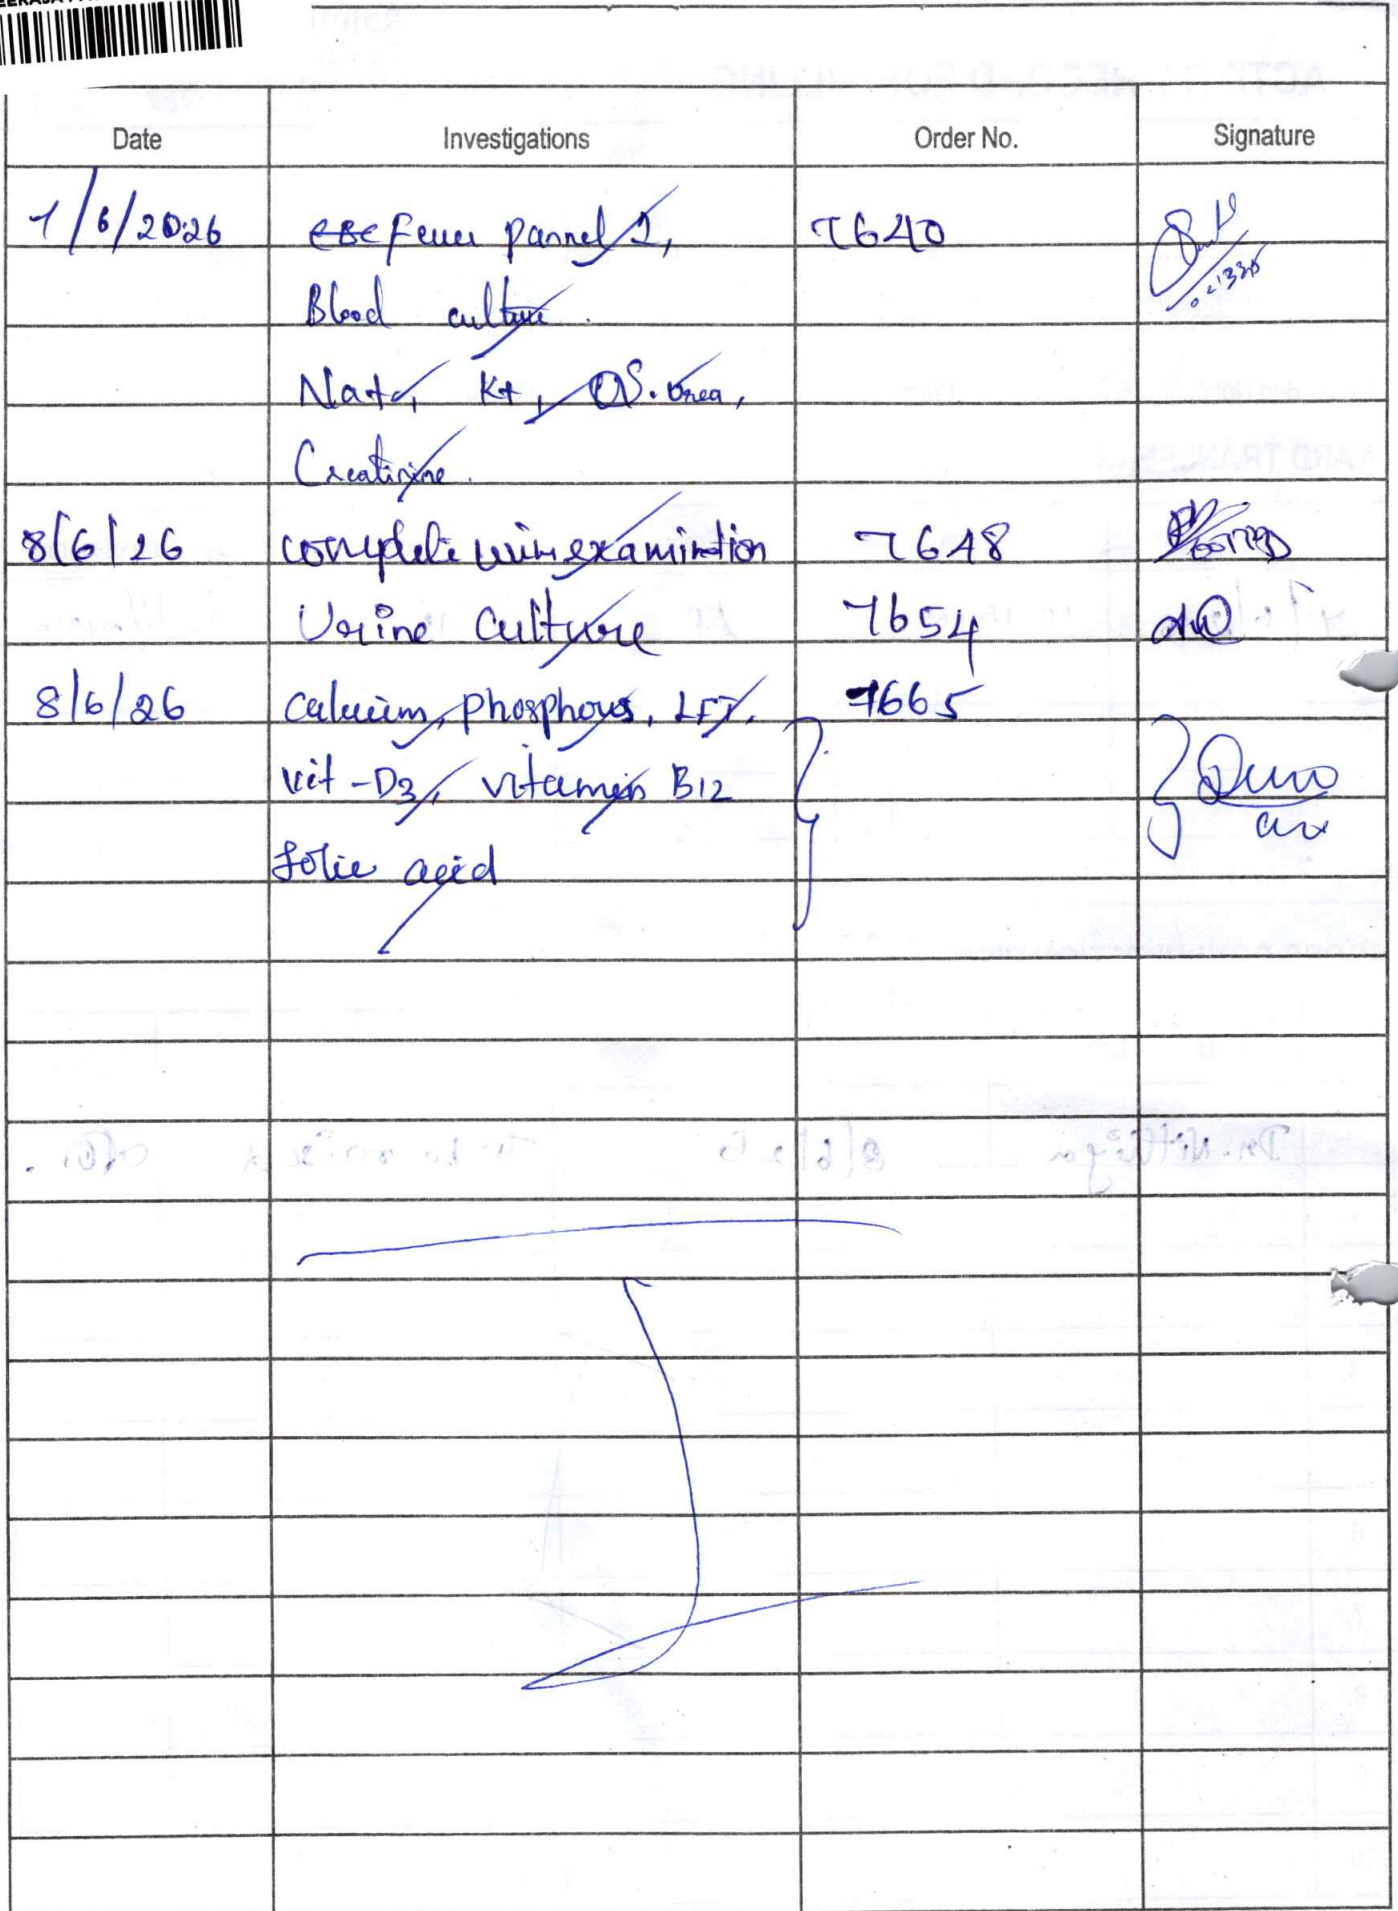 Date Investigations Order No. Signature
7/6/2026 Fever pannel 1, 7640
Blood culture.
Na+, K+, S. Urea,
Creatinine.
8/6/26 complete urine examination 7648
Urine Culture 7654
8/6/26 Calcium, phosphorus, LFT, 7665
vit-D3, vitamin B12
folic acid